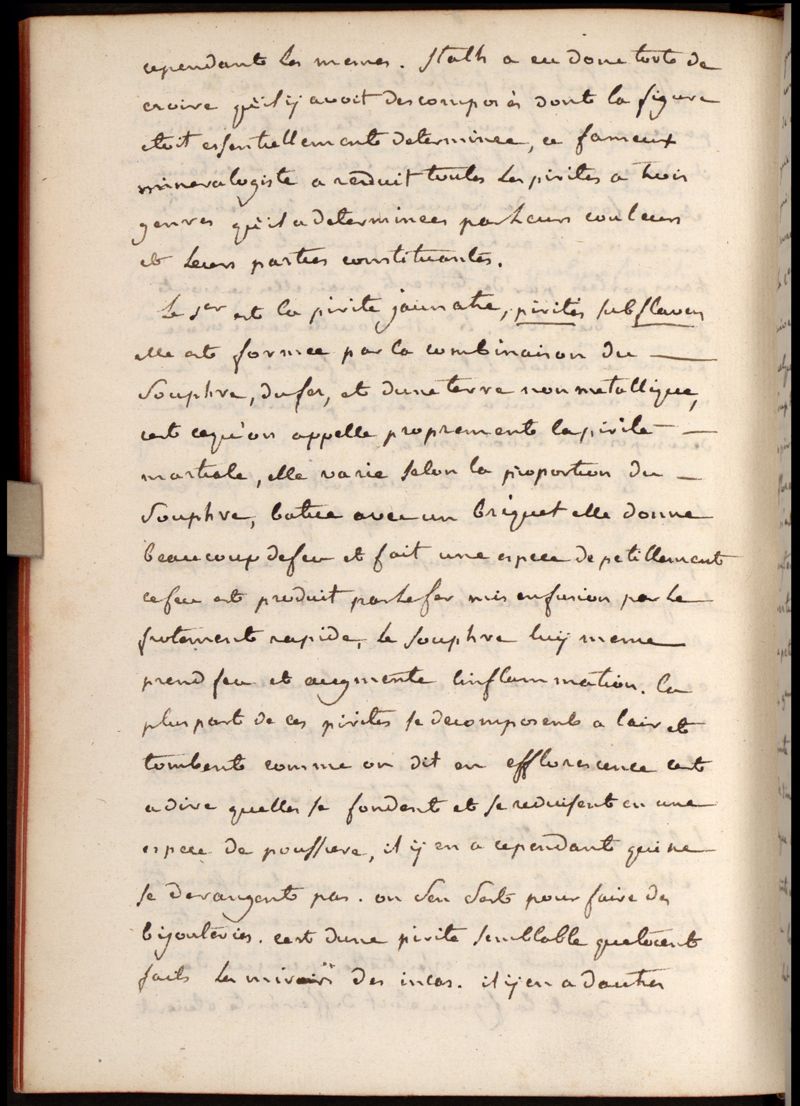 cependant les memes. Stalh a eu donc tort de
croire qu'il ij avoit des composés dont la figure
etoit essentiellement determinee, ce fameux
mineralogiste a reduit toutes les pirites a trois
genres qu'il a determinees par leurs couleurs
et leurs parties constituantes.
Le 1er est la pirite jaunatre, pirites subflavus
elle est formee par la combinaison du
souphre, du fer, et dune terre non metallique,
cest cequ'on appelle proprement la pirite
martiale, elle varie selon la proportion du
souphre, batue avec un briquet elle donne
beaucoup de feu et fait une espece de petillement
ce feu est produit par le fer mis en fusion par le
frotement rapide, le souphre luij meme
prend feu et augmente linflammation. la
pluspart de ces pirites se decomposent a lair et
tombent comme on dit en efflorescence cest
adire quelles se fondent et se reduisent en une
espece de poussiere, il ij en a cependant qui ne
se derangent pas. on sen sert pour faire des
bijouteries. cest dune pirite semblable que
faits les miroirs des incas. il ij en a dautres